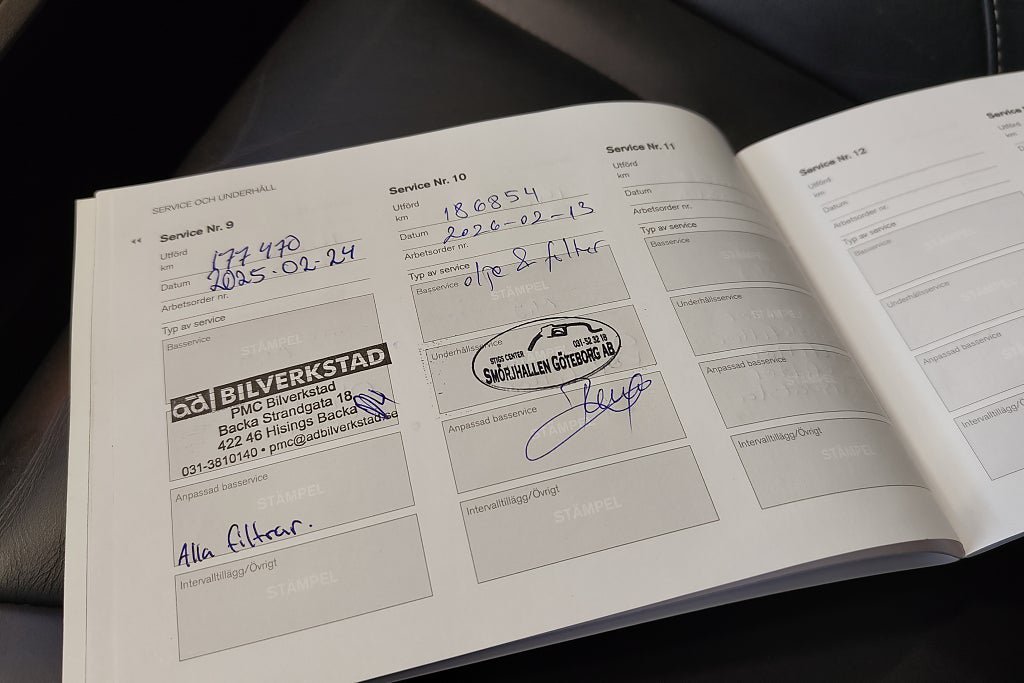 SERVICE OCH UNDERHÅLL
Service Nr. 9
Utförd
km 177 470
Datum 2025-02-24
Arbetsorder nr.
Typ av service
Basservice
STÄMPEL
ad BILVERKSTAD
PMC Bilverkstad
Backa Strandgata 18
422 46 Hisings Backa
031-3810140 • pmc@adbilverkstad.se
Anpassad basservice
STÄMPEL
Alla filtrar.
Intervalltillägg/Övrigt
STÄMPEL
Service Nr. 10
Utförd
km 186854
Datum 2026-02-13
Arbetsorder nr.
Typ av service olja & filter
Basservice
STÄMPEL
Underhållsservice
STIGS CENTER
031-52 32 19
SMÖRJHALLEN GÖTEBORG AB
Anpassad basservice
STÄMPEL
Intervalltillägg/Övrigt
STÄMPEL
Service Nr. 11
Utförd
km
Datum
Arbetsorder nr.
Typ av service
Basservice
STÄMPEL
Underhållsservice
STÄMPEL
Anpassad basservice
STÄMPEL
Intervalltillägg/Övrigt
STÄMPEL
Service Nr. 12
Utförd
km
Datum
Arbetsorder nr.
Typ av service
Basservice
Underhållsservice
Anpassad basservice
Intervalltillägg/Övrigt
Service
Utförd
km